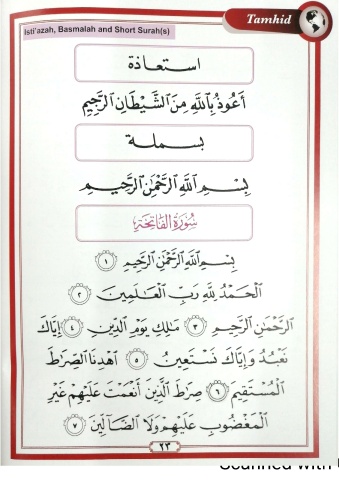 Tamhid
Isti'azah, Basmalah and Short Surah(s)
استعاذة
أَعُوذُ بِٱللَّهِ مِنَ ٱلشَّيْطَانِ ٱلرَّجِيمِ
بسملة
بِسْمِ ٱللَّهِ ٱلرَّحْمَٰنِ ٱلرَّحِيمِ
سُورَةُ الْفَاتِحَةِ
بِسْمِ ٱللَّهِ ٱلرَّحْمَٰنِ ٱلرَّحِيمِ ١
ٱلْحَمْدُ لِلَّهِ رَبِّ ٱلْعَٰلَمِينَ ٢
ٱلرَّحْمَٰنِ ٱلرَّحِيمِ ٣ مَٰلِكِ يَوْمِ ٱلدِّينِ ٤ إِيَّاكَ
نَعْبُدُ وَإِيَّاكَ نَسْتَعِينُ ٥ ٱهْدِنَا ٱلصِّرَٰطَ
ٱلْمُسْتَقِيمَ ٦ صِرَٰطَ ٱلَّذِينَ أَنْعَمْتَ عَلَيْهِمْ غَيْرِ
ٱلْمَغْضُوبِ عَلَيْهِمْ وَلَا ٱلضَّآلِّينَ ٧
٢٣
Scanned with